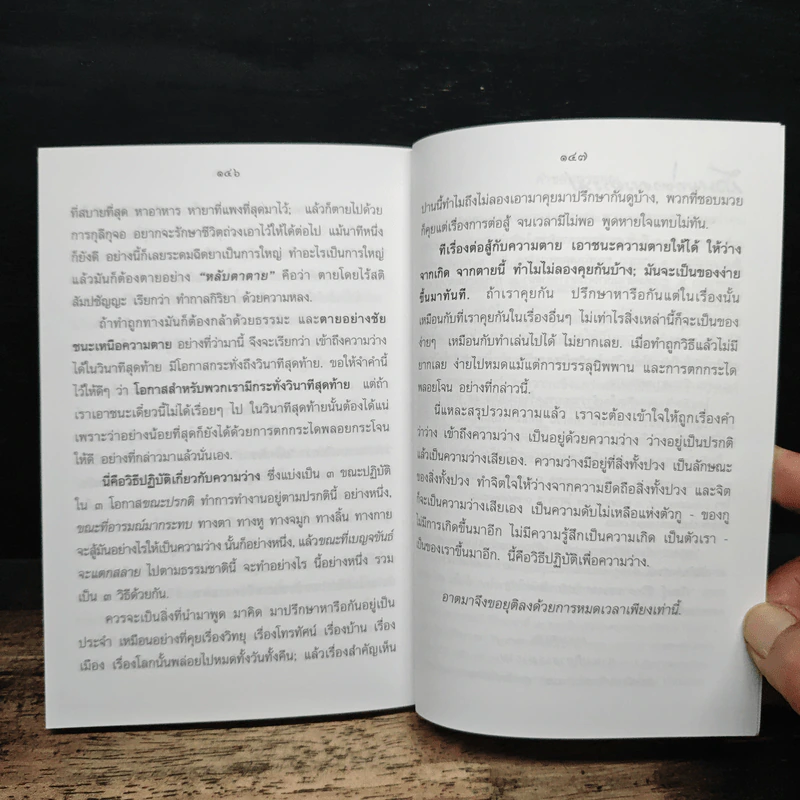 ๑๔๖
ที่สบายที่สุด หาอาหาร หายาที่แพงที่สุดมาไว้; แล้วก็ตายไปด้วย
การกุลีกุจอ อยากจะรักษาชีวิตถ่วงเอาไว้ให้ได้ต่อไป แม้นาทีหนึ่ง
ก็ยังดี อย่างนี้ก็เลยระดมฉีดยาเป็นการใหญ่ ทำอะไรเป็นการใหญ่
แล้วมันก็ต้องตายอย่าง “หลับตาตาย” คือว่า ตายโดยไร้สติ
สัมปชัญญะ เรียกว่า ทำกาลกิริยา ด้วยความหลง.
ถ้าทำถูกทางมันก็ต้องกล้าด้วยธรรมะ และตายอย่างชัย
ชนะเหนือความตาย อย่างที่ว่ามานี้ จึงจะเรียกว่า เข้าถึงความว่าง
ได้ในวินาทีสุดท้าย มีโอกาสกระทั่งถึงวินาทีสุดท้าย. ขอให้จำคำนี้
ไว้ให้ดีๆ ว่า โอกาสสำหรับพวกเรามีกระทั่งวินาทีสุดท้าย แต่ถ้า
เราเอาชนะเดี๋ยวนี้ไม่ได้เรื่อยๆ ไป ในวินาทีสุดท้ายนั้นต้องได้แน่
เพราะว่าอย่างน้อยที่สุดก็ยังได้ด้วยการตกกระไดพลอยกระโจน
ให้ดี อย่างที่กล่าวมาแล้วนั่นเอง.
นี่คือวิธีปฏิบัติเกี่ยวกับความว่าง ซึ่งแบ่งเป็น ๓ ขณะปฏิบัติ
ใน ๓ โอกาสขณะปรกติ ทำการทำงานอยู่ตามปรกตินี้ อย่างหนึ่ง,
ขณะที่อารมณ์มากระทบ ทางตา ทางหู ทางจมูก ทางลิ้น ทางกาย
จะสู้มันอย่างไรให้เป็นความว่าง นั้นก็อย่างหนึ่ง, แล้วขณะที่เบญจขันธ์
จะแตกสลาย ไปตามธรรมชาตินี้ จะทำอย่างไร นี้อย่างหนึ่ง รวม
เป็น ๓ วิธีด้วยกัน.
ควรจะเป็นสิ่งที่นำมาพูด มาคิด มาปรึกษาหารือกันอยู่เป็น
ประจำ เหมือนอย่างที่คุยเรื่องวิทยุ เรื่องโทรทัศน์ เรื่องบ้าน เรื่อง
เมือง เรื่องโลกนั้นพล่อยไปหมดทั้งวันทั้งคืน; แล้วเรื่องสำคัญเห็น
๑๔๗
ปานนี้ทำไมถึงไม่ลองเอามาคุยมาปรึกษากันดูบ้าง, พวกที่ชอบมวย
ก็คุยแต่เรื่องการต่อสู้ จนเวลามีไม่พอ พูดหายใจแทบไม่ทัน.
ทีเรื่องต่อสู้กับความตาย เอาชนะความตายให้ได้ ให้ว่าง
จากเกิด จากตายนี้ ทำไมไม่ลองคุยกันบ้าง; มันจะเป็นของง่าย
ขึ้นมาทันที. ถ้าเราคุยกัน ปรึกษาหารือกันแต่ในเรื่องนั้น
เหมือนกับที่เราคุยกันในเรื่องอื่นๆ ไม่เท่าไรสิ่งเหล่านี้ก็จะเป็นของ
ง่ายๆ เหมือนกับทำเล่นไปได้ ไม่ยากเลย. เมื่อทำถูกวิธีแล้วไม่มี
ยากเลย ง่ายไปหมดแม้แต่การบรรลุนิพพาน และการตกกระได
พลอยโจน อย่างที่กล่าวนี้.
นี่แหละสรุปรวมความแล้ว เราจะต้องเข้าใจให้ถูกเรื่องคำ
ว่าว่าง เข้าถึงความว่าง เป็นอยู่ด้วยความว่าง ว่างอยู่เป็นปรกติ
แล้วเป็นความว่างเสียเอง. ความว่างมีอยู่ที่สิ่งทั้งปวง เป็นลักษณะ
ของสิ่งทั้งปวง ทำจิตใจให้ว่างจากความยึดถือสิ่งทั้งปวง และจิต
ก็จะเป็นความว่างเสียเอง เป็นความดับไม่เหลือแห่งตัวกู - ของกู
ไม่มีการเกิดขึ้นมาอีก ไม่มีความรู้สึกเป็นความเกิด เป็นตัวเรา -
เป็นของเราขึ้นมาอีก. นี้คือวิธีปฏิบัติเพื่อความว่าง.
อาตมาจึงขอยุติลงด้วยการหมดเวลาเพียงเท่านี้.